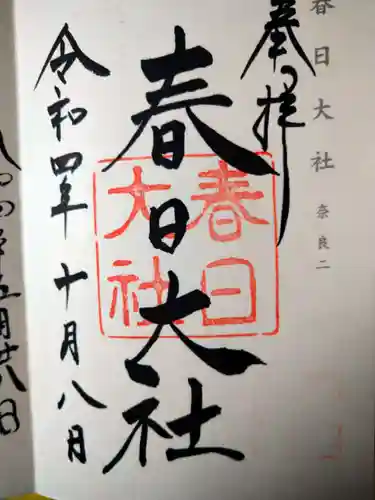 春日大社 奈良二
奉拝
春日大社
春日
大社
令和四年十月八日
五月廿八日